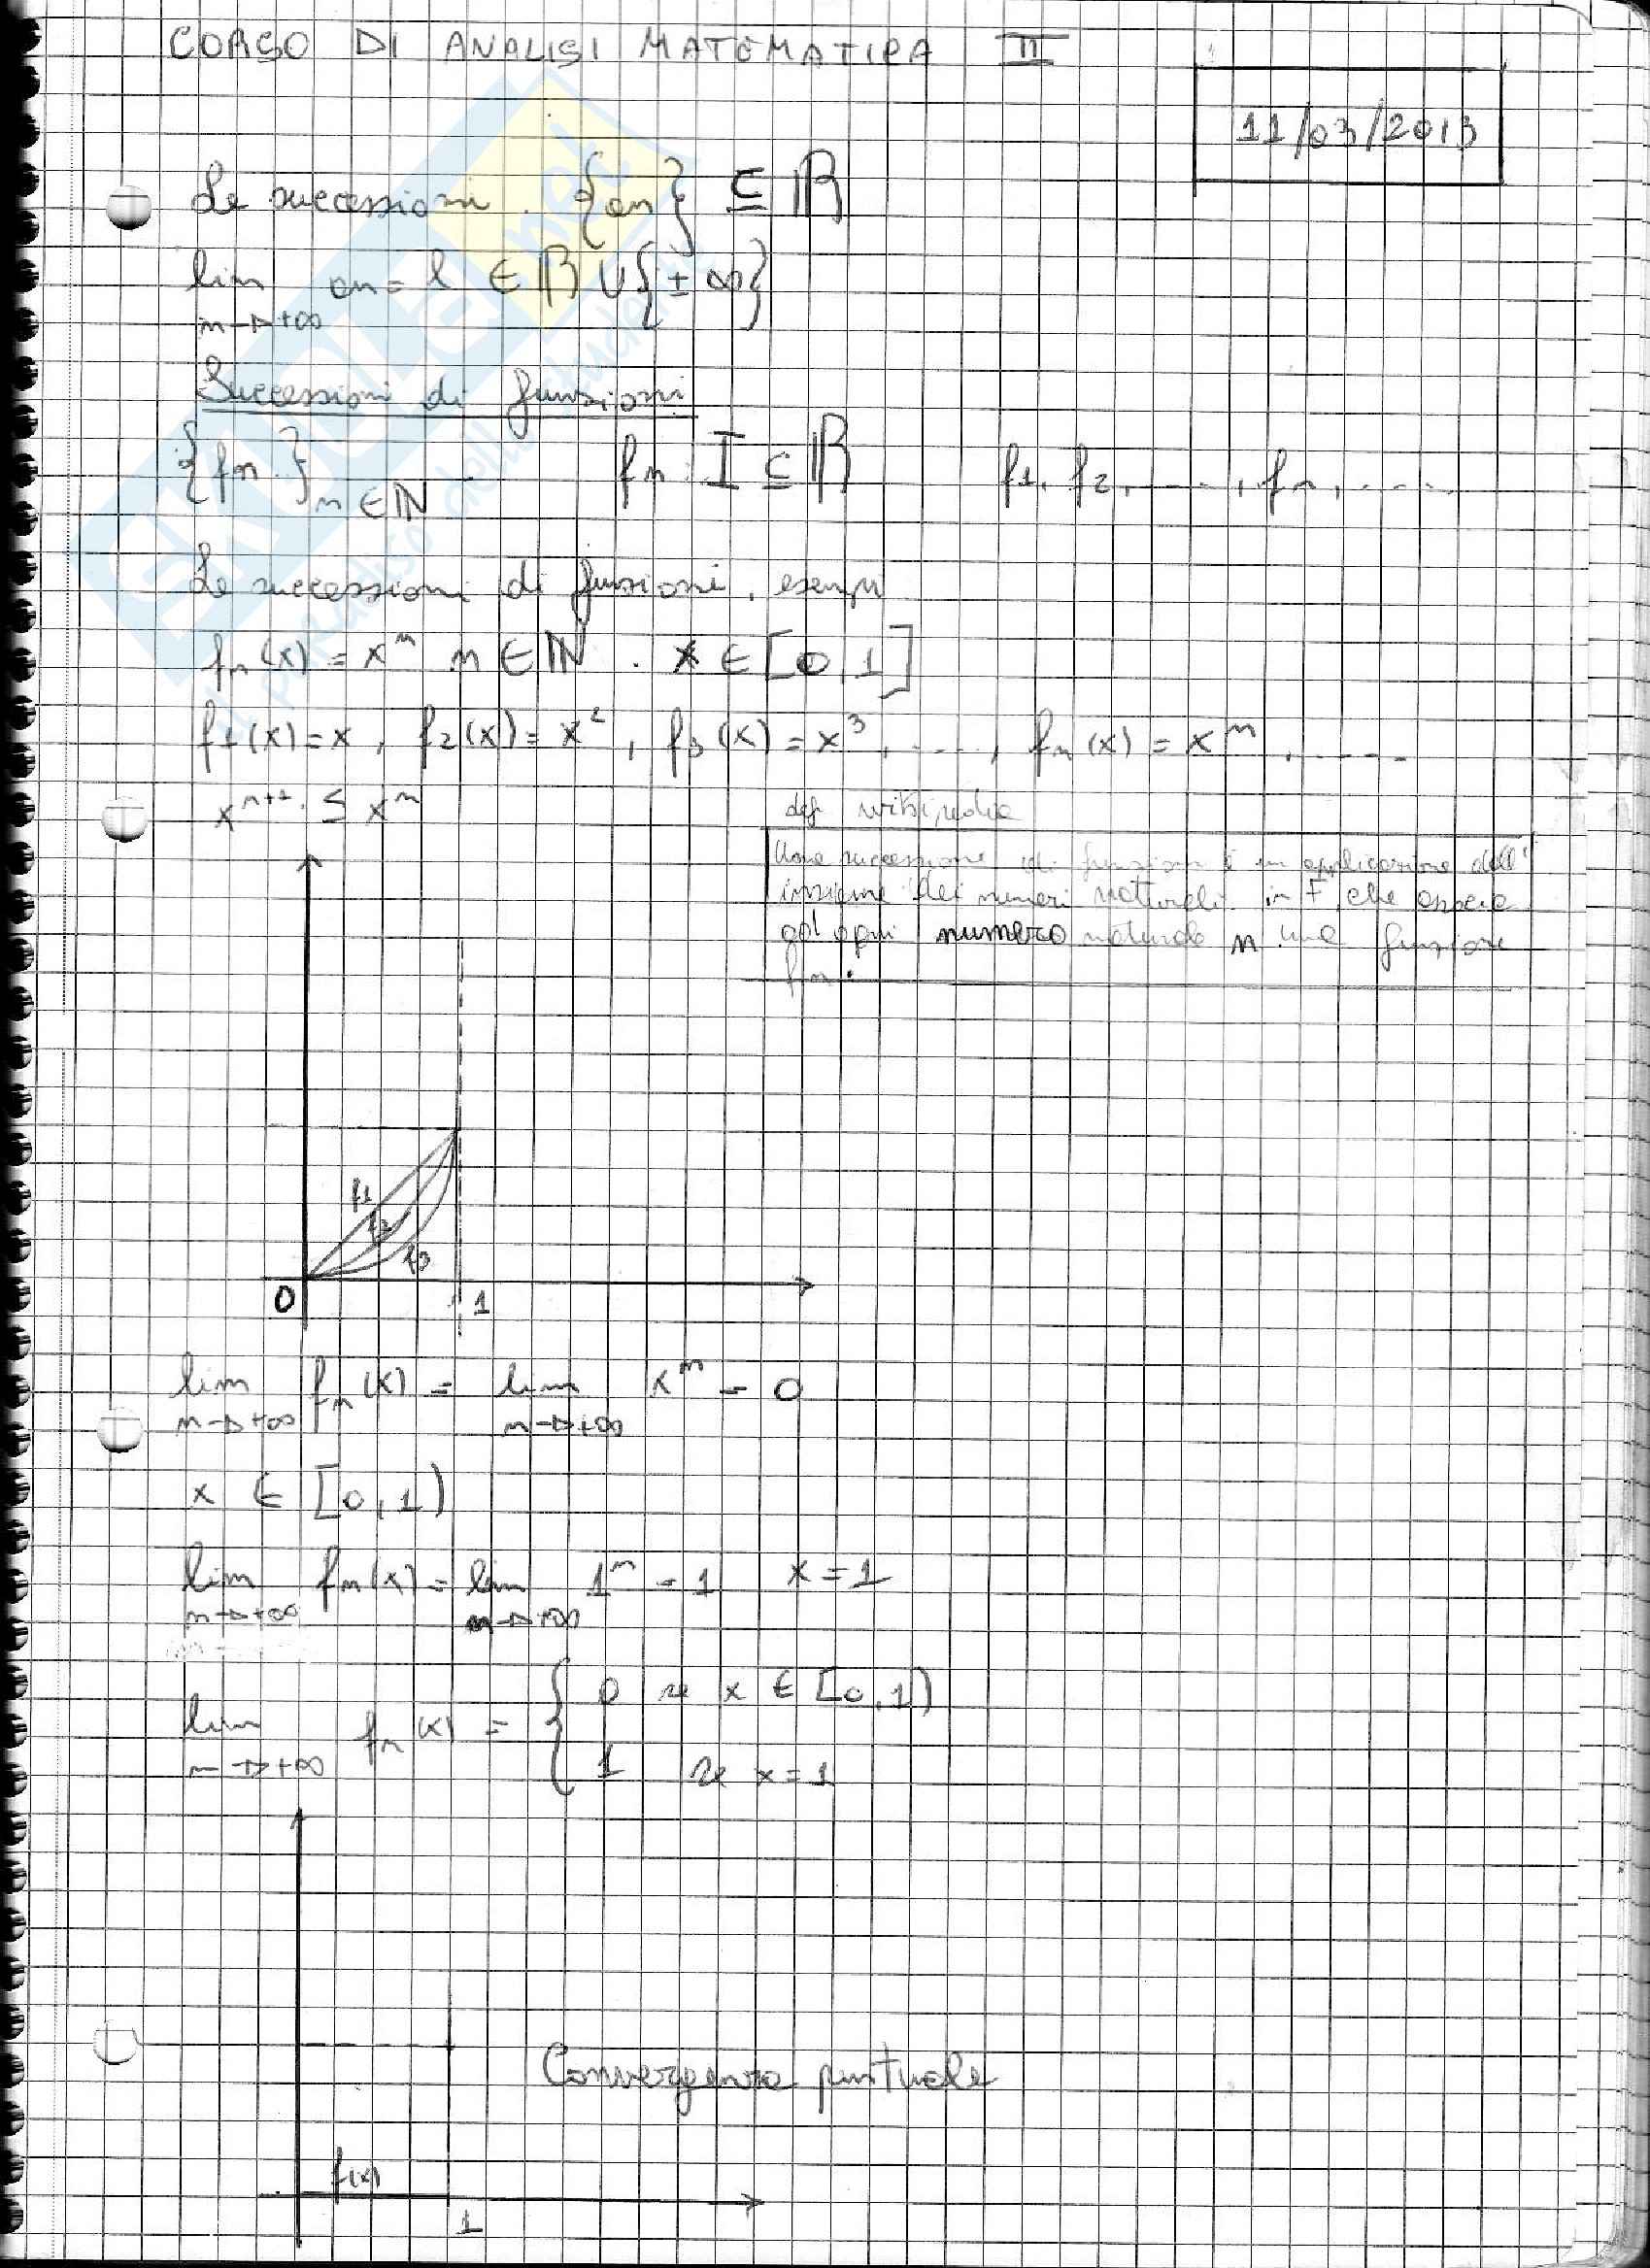 CORSO DI ANALISI MATEMATICA II
11/03/2013
Le successioni. {an} ⊆ ℝ
lim an = l ∈ ℝ ∪ {± ∞}
n→+∞
Successioni di funzioni
{fn}n∈ℕ fn: I ⊆ ℝ f1, f2, ...., fn, ....
Le successioni di funzioni, esempi
fn(x) = xⁿ n ∈ ℕ. x ∈ [0,1]
f1(x) = x, f2(x) = x², f3(x) = x³, ...., fn(x) = xⁿ, ....
xⁿ⁺¹ ≤ xⁿ
def wikipedia
Una successione di funzioni è un applicazione dell'
insieme dei numeri naturali in F che associa
ad ogni numero naturale n una funzione
fn.
f1
f2
f3
0 1
lim fn(x) = lim xⁿ = 0
n→+∞ n→+∞
x ∈ [0,1)
lim fn(x) = lim 1ⁿ = 1 x = 1
n→+∞ n→+∞
lim fn(x) = { 0 se x ∈ [0,1)
n→+∞ 1 se x = 1
Convergenza puntuale
f(x)
1